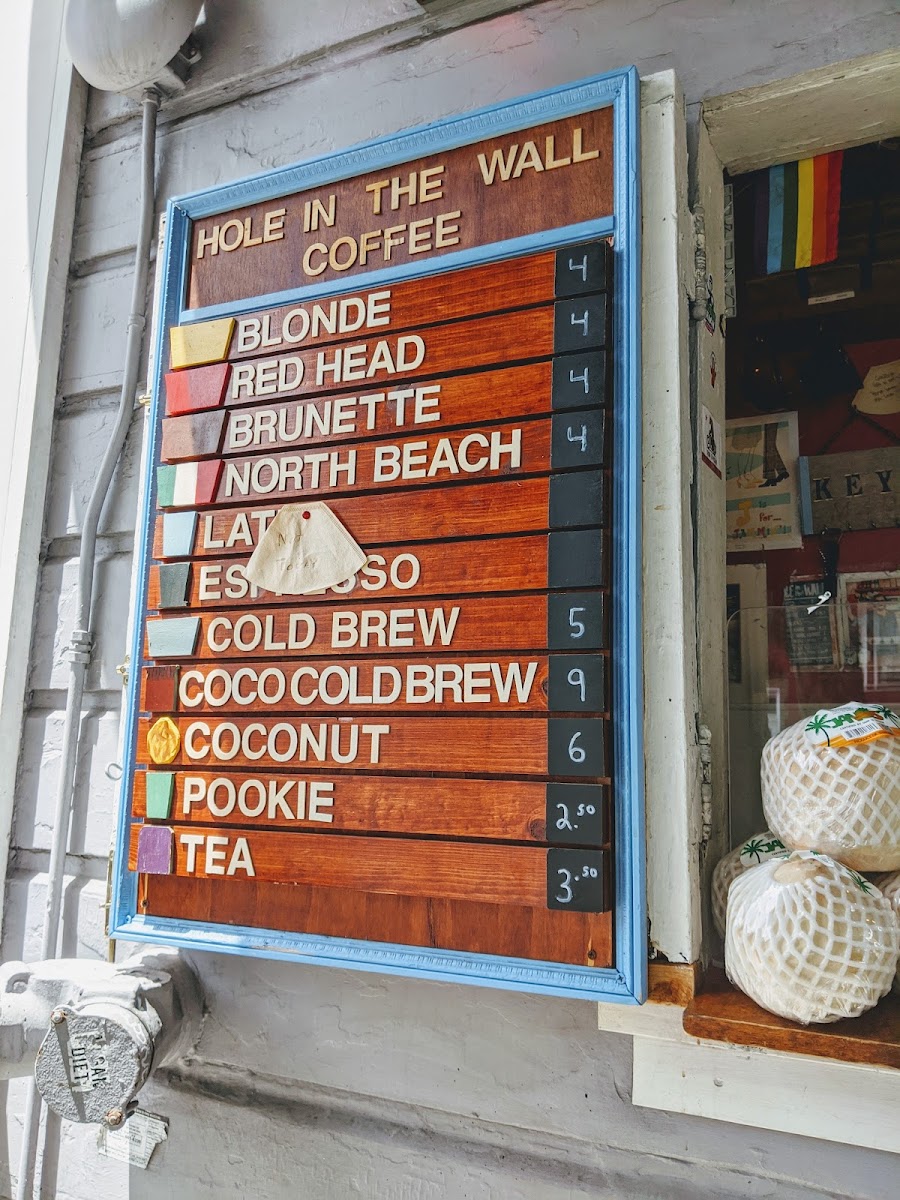 HOLE IN THE WALL
COFFEE
BLONDE 4
RED HEAD 4
BRUNETTE 4
NORTH BEACH 4
LAT
ES SSO
COLD BREW 5
COCO COLD BREW 9
COCONUT 6
POOKIE 2.50
TEA 3.50
KEY